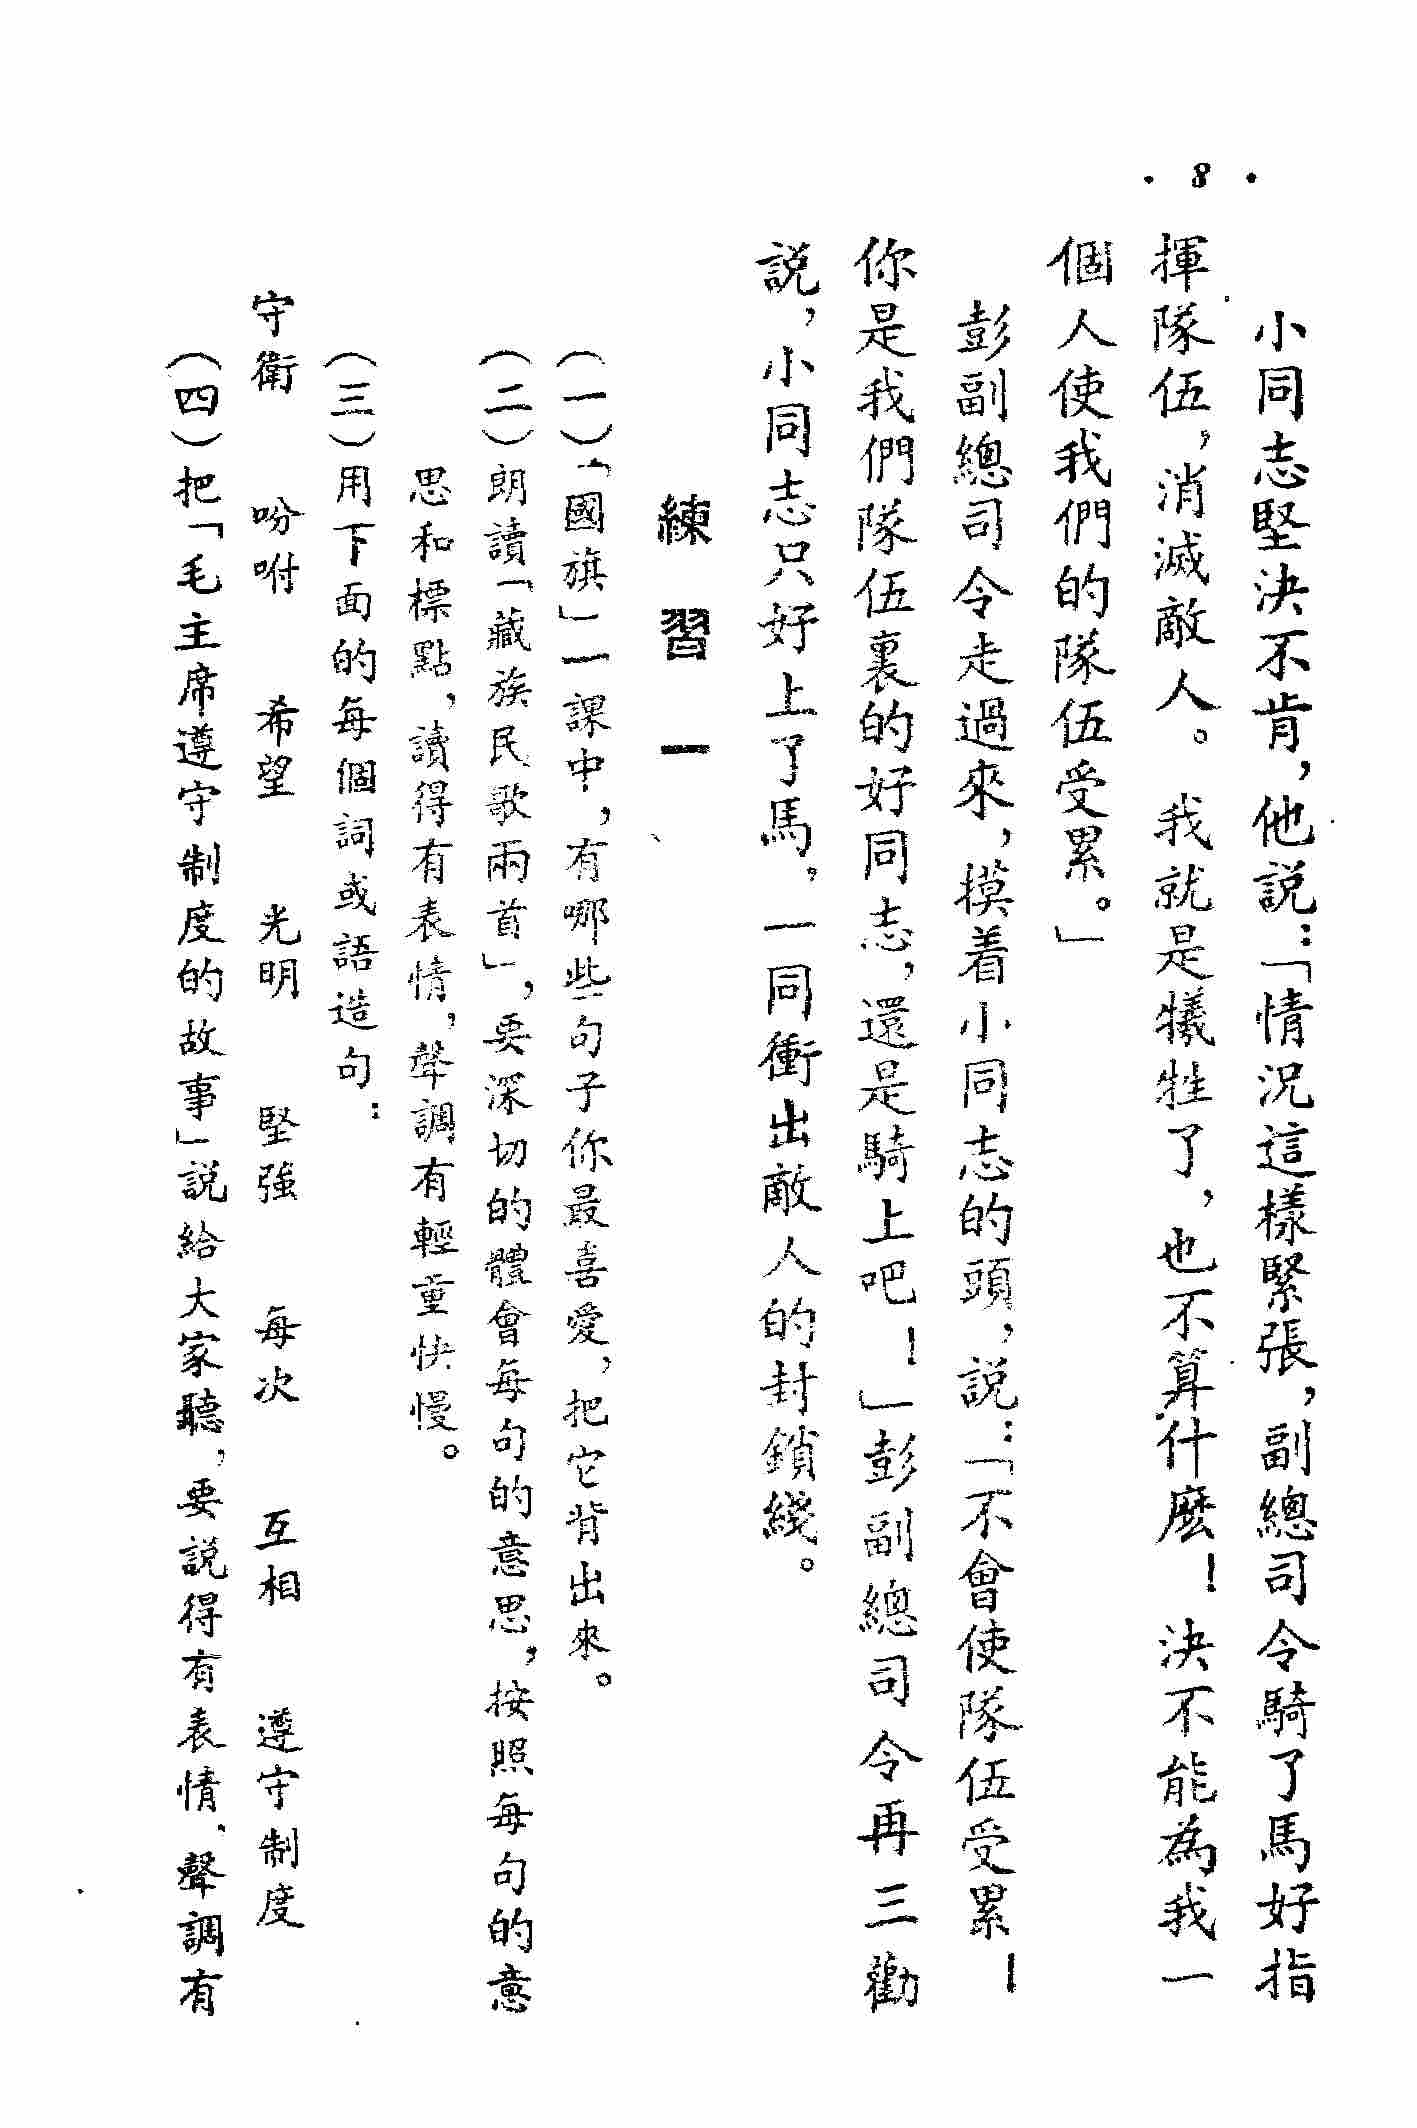 · 8 ·
小同志堅決不肯，他説：「情況這樣緊張，副總司令騎了馬好指
揮隊伍，消滅敵人。我就是犧牲了，也不算什麽！決不能為我一
個人使我們的隊伍受累。」
彭副總司令走過來，摸着小同志的頭，説：「不會使隊伍受累！
你是我們隊伍裏的好同志，還是騎上吧！」彭副總司令再三勸
説，小同志只好上了馬。一同衝出敵人的封鎖綫。
練習一
（一）「國旗」一課中，有哪些句子你最喜愛，把它背出來。
（二）朗讀「藏族民歌兩首」，要深切的體會每句的意思，按照每句的意
思和標點，讀得有表情，聲調有輕重快慢。
（三）用下面的每個詞或語造句：
守衛 吩咐 希望 光明 堅強 每次 互相 遵守制度
（四）把「毛主席遵守制度的故事」説給大家聽，要説得有表情，聲調有